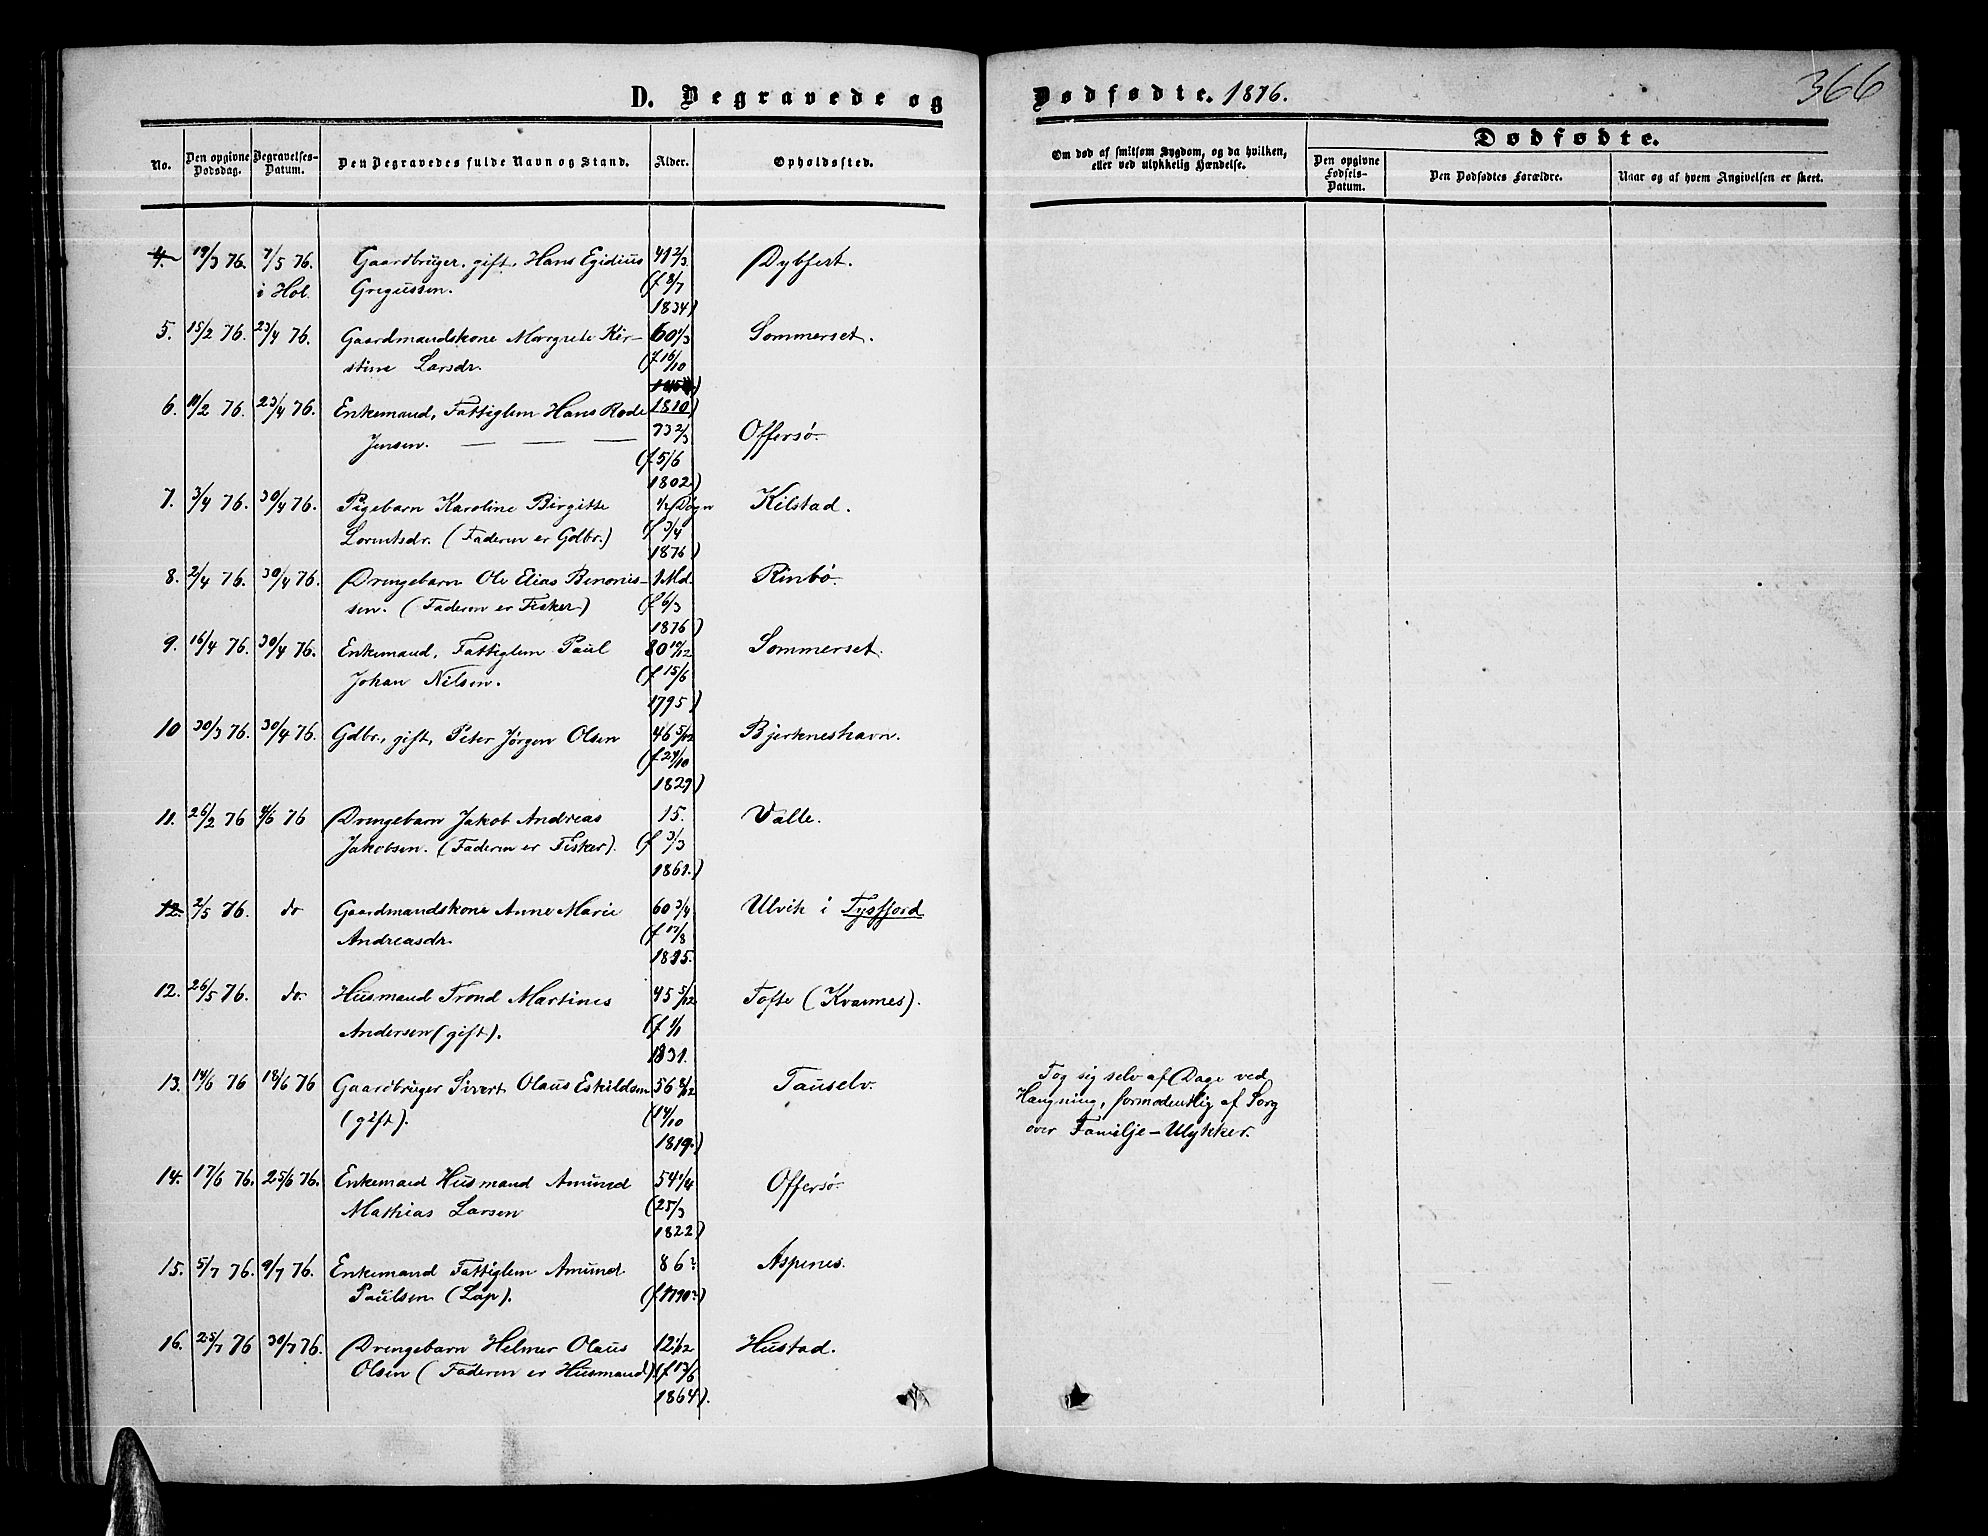 D. Begravede og
Dødfødte. 1876.
366
No.
Den opgivne Dødsdag.
Begravelses-Datum.
Den Begravedes fulde Navn og Stand.
Alder.
Opholdssted.
Om død af smitsom Sygdom, og da hvilken, eller ved ulykkelig Hændelse.
Dødfødte.
Den opgivne Fødsels-Datum.
Den Dødfødtes Forældre.
Naar og af hvem Angivelsen er skeet.
4. 19/3 76. 7/5 76. Gaardbruger, gift, Hans Egidius 41 2/3 Dybfert.
i Hol. Gregussen. (f 8/7
1834)
5. 15/2 76. 23/4 76. Gaardmandskone Margrete Kir- 60 1/3 Sommerset.
stine Larsdr. (f 16/10
6. 11/2 76. 23/4 76. Enkemand, Fattiglem Hans Rode 1810)
Jensen. — — — 73 2/3 Offersø.
(f 5/6
1802)
7. 3/4 76. 30/4 76. Pigebarn Karoline Birgitte 1/2 Døgn Kilstad.
Lorentsdr. (Faderen er Gdbr.) (f 3/4
1876)
8. 2/4 76. 30/4 76. Drengebarn Ole Elias Benonis- 1 Md. Rinbø.
sen. (Faderen er Fisker) (f 6/3
1876)
9. 16/4 76. 30/4 76. Enkemand, Fattiglem Paul 80 10/12 Sommerset.
Johan Nilsen. (f 15/6
1795)
10 30/3 76. 30/4 76. Gdbr., gift, Peter Jørgen Olsen 46 5/12 Bjerkneshavn.
(f 24/10
1829)
11. 26/2 76 4/6 76 Drengebarn Jakob Andreas 15. Valle.
Jakobsen. (Faderen er Fisker). (f 3/3
1861.)
12. 2/5 76. do Gaardmandskone Anne Marie 60 3/4 Ulvik i Tysfjord
Andreasdr. (f 17/8
1815.
12. 26/5 76. do Husmand Trond Martinus 45 5/12 Tofte (Kvarnes).
Andersen (gift). (f 1/1
1831.
13. 14/6 76 18/6 76 Gaardbruger Sivert Olaus Eskildsen 56 8/12 Tauselv.
(gift). (14/10
1819.)
Tog sig selv af Dage ved
Hængning, formodentlig af Sorg
over Familje-Ulykker.
14. 17/6 76. 25/6 76. Enkemand Husmand Amund 54 1/4 Offersø
Mathias Larsen (25/3
1822)
15. 5/7 76. 9/7 76. Enkemand Fattiglem Amund 86? Aspenes.
Paulsen (Lap). (f. 1790?)
16. 25/7 76 30/7 76. Drengebarn Helmer Olaus 12 1/12 Hustad.
Olsen (Faderen er Husmand). (f 13/6
1864).